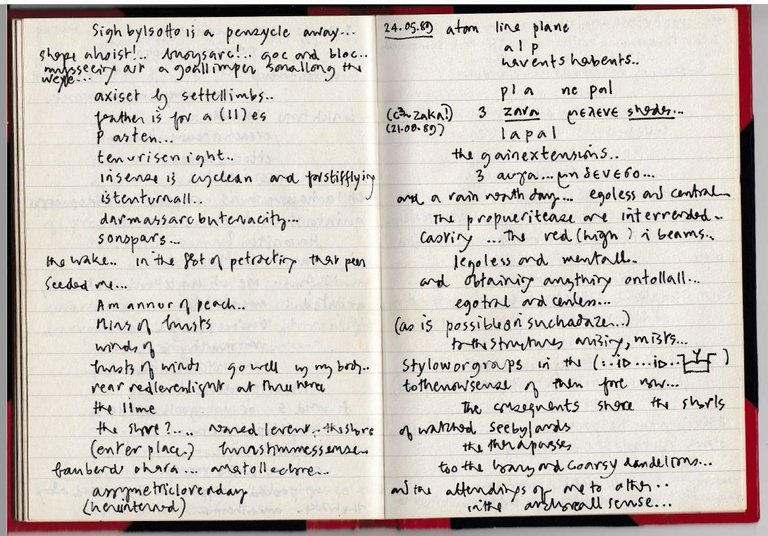 Sighbylsotto is a penzycle away...
shope ahoist!.. buoysarc!.. goc and bloc..
art a goallimper sonallong the
weyle...
axiset by settellimbs..
feather is for a (11) es
P asten...
tenurisenight..
insense is cyclean and forstifflying
istenturnall..
darmassarc butenacity...
sonspars...
the wake.. in the of petracting that peen
seeded me...
Am annur of peach..
Mins of bursts
winds of
bursts of winds go well by my body..
near redlevenlight at three here
the lime
the shore?.... named levent.. the shore
(enter place.)
assymetricloreaday
24.05.89 atom line plane
a l p
havents habents..
pla ne pal
3 zara μελενε shades...
(21.08.89)
lapal
the gainextensions..
3 αυρα... μηδενεσο...
and a rain north day... egoless and central..
The propueritease are interrended..
Casting ... the red (high) i beams..
legoless and mentall..
and obtaining anything ontollall...
egotral and cenless...
(as is possible on suchadaze..)
to the structures arising, mists...
Styloworgraps in the
tothenowsense of then fore now...
The consequents share the shorls
of watched seebylands
the
too the brany and coarsy dandelions...
and the attendings of one to other..
in the sense...